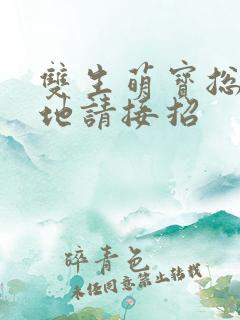 雙生萌寶總
地請接招
碎青色
未经同意禁止转载